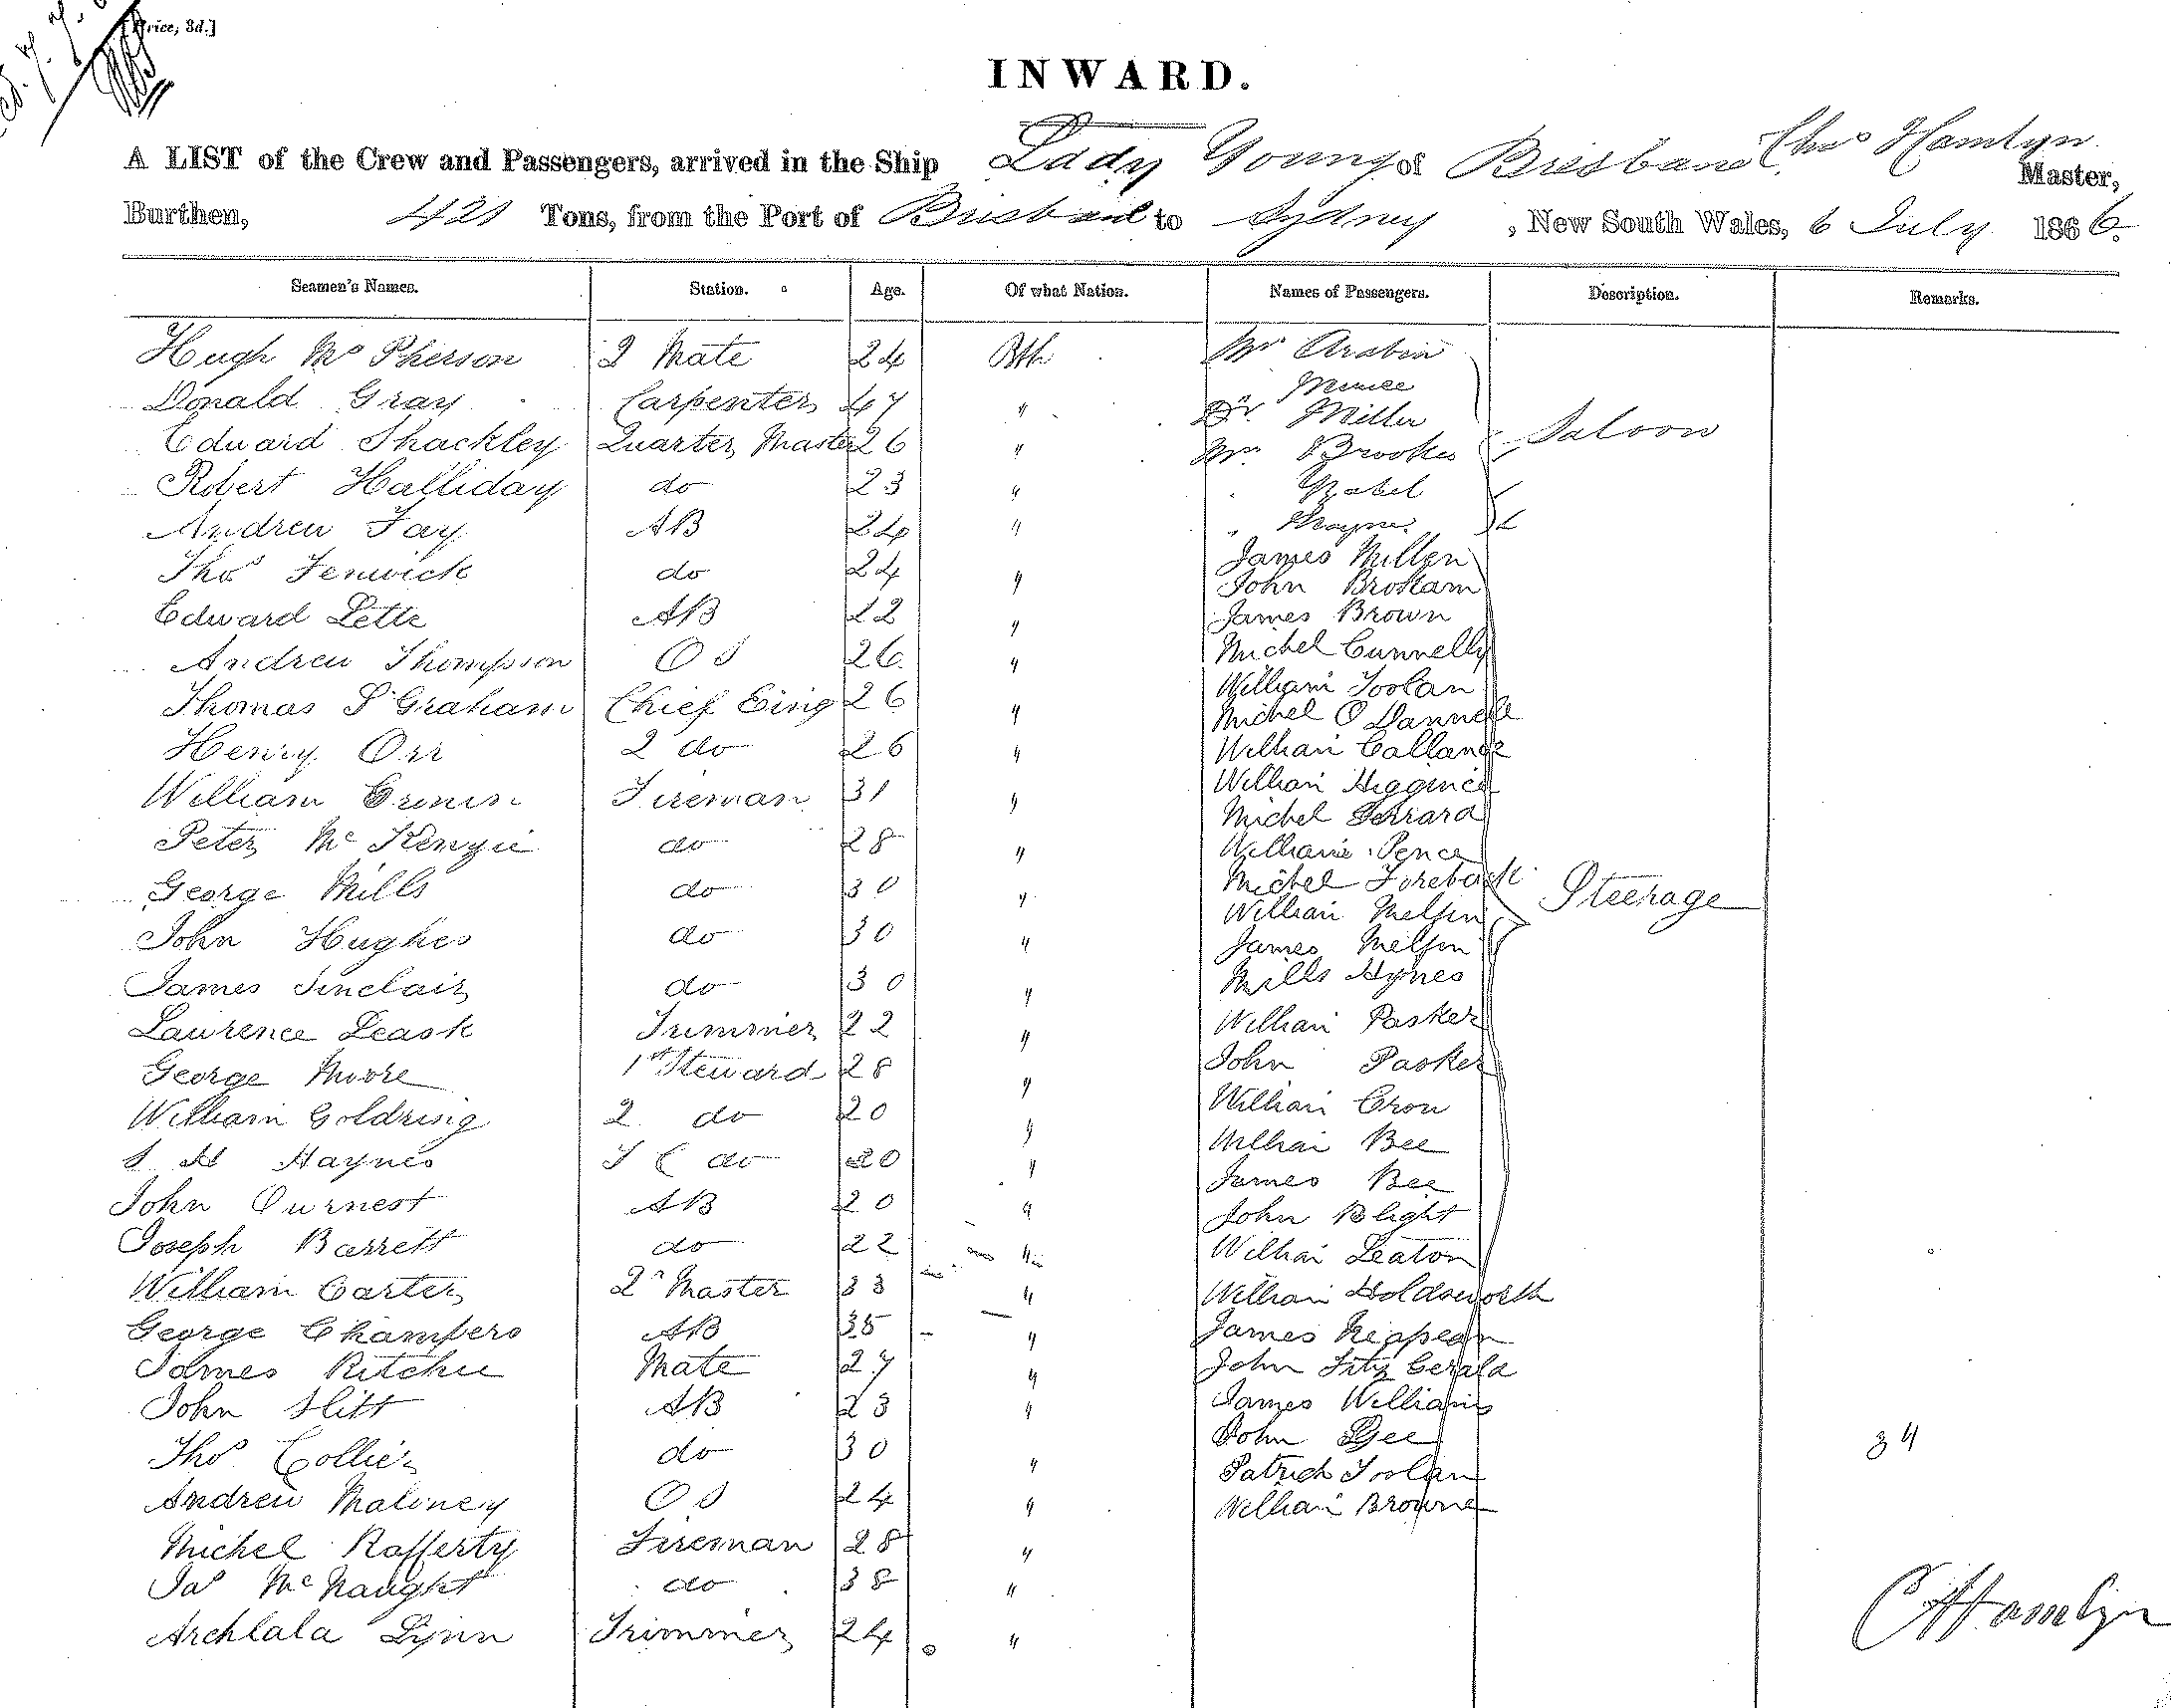 Price, 3d.]
INWARD.
A LIST of the Crew and Passengers, arrived in the Ship Lady Young of Brisbane Chas Hamlyn Master,
Burthen, 421 Tons, from the Port of Brisbane to Sydney, New South Wales, 6 July 1866.
Seamen's Names. Station. Age. Of what Nation. Names of Passengers. Description. Remarks.
Hugh Mc Pherson 2 Mate 24 Bth Mr Arabin
Donald Gray Carpenter 47 " Dr Miller
Edward Shackley Quarter Master 26 " Mr Brookes Saloon
Robert Halliday do 23 "
Andrew Fay AB 24 " "
Thos Fenwick do 24 " James Millen
John
Edward Lette AB 22 " James Brown
Andrew Thompson OS 26 " Michel Cunnelly
Thomas S Graham Chief Eing 26 " William Toolan
Michel O Dannell
Henry Orr 2 do 26 " William
William Fireman 31 " William
Michel Gerrard
Peter Mc Kenzie do 28 " William Pence
George Mills do 30 " Michel Steerage
William
John Hughes do 30 " James
James Sinclair do 30 " Mills Hynes
Laurence Leask Trimmer 22 " William Pasker
George Moore 1st Steward 28 " John Pasker
William Goldring 2 do 20 " William Cron
Haynes do 20 " William Bee
James Bee
John Ournest AB 20 " John Blight
Joseph Barrett do 22 " William Leaton
William Carter 2r Master 33 " William Holdsworth
George Chambers AB 35 " James
James Ritchie Mate 27 " John Fitz Gerald
John Slitt AB 23 " James Williams
Thos Collier do 30 " John Gee 34
Patrick Toolan
Andrew Maloney OS 24 " William Browne
Michel Rafferty Fireman 28 "
Jas Mc Naught do 38 "
Archlala Lynn Trimmer 24 "
C Hamlyn